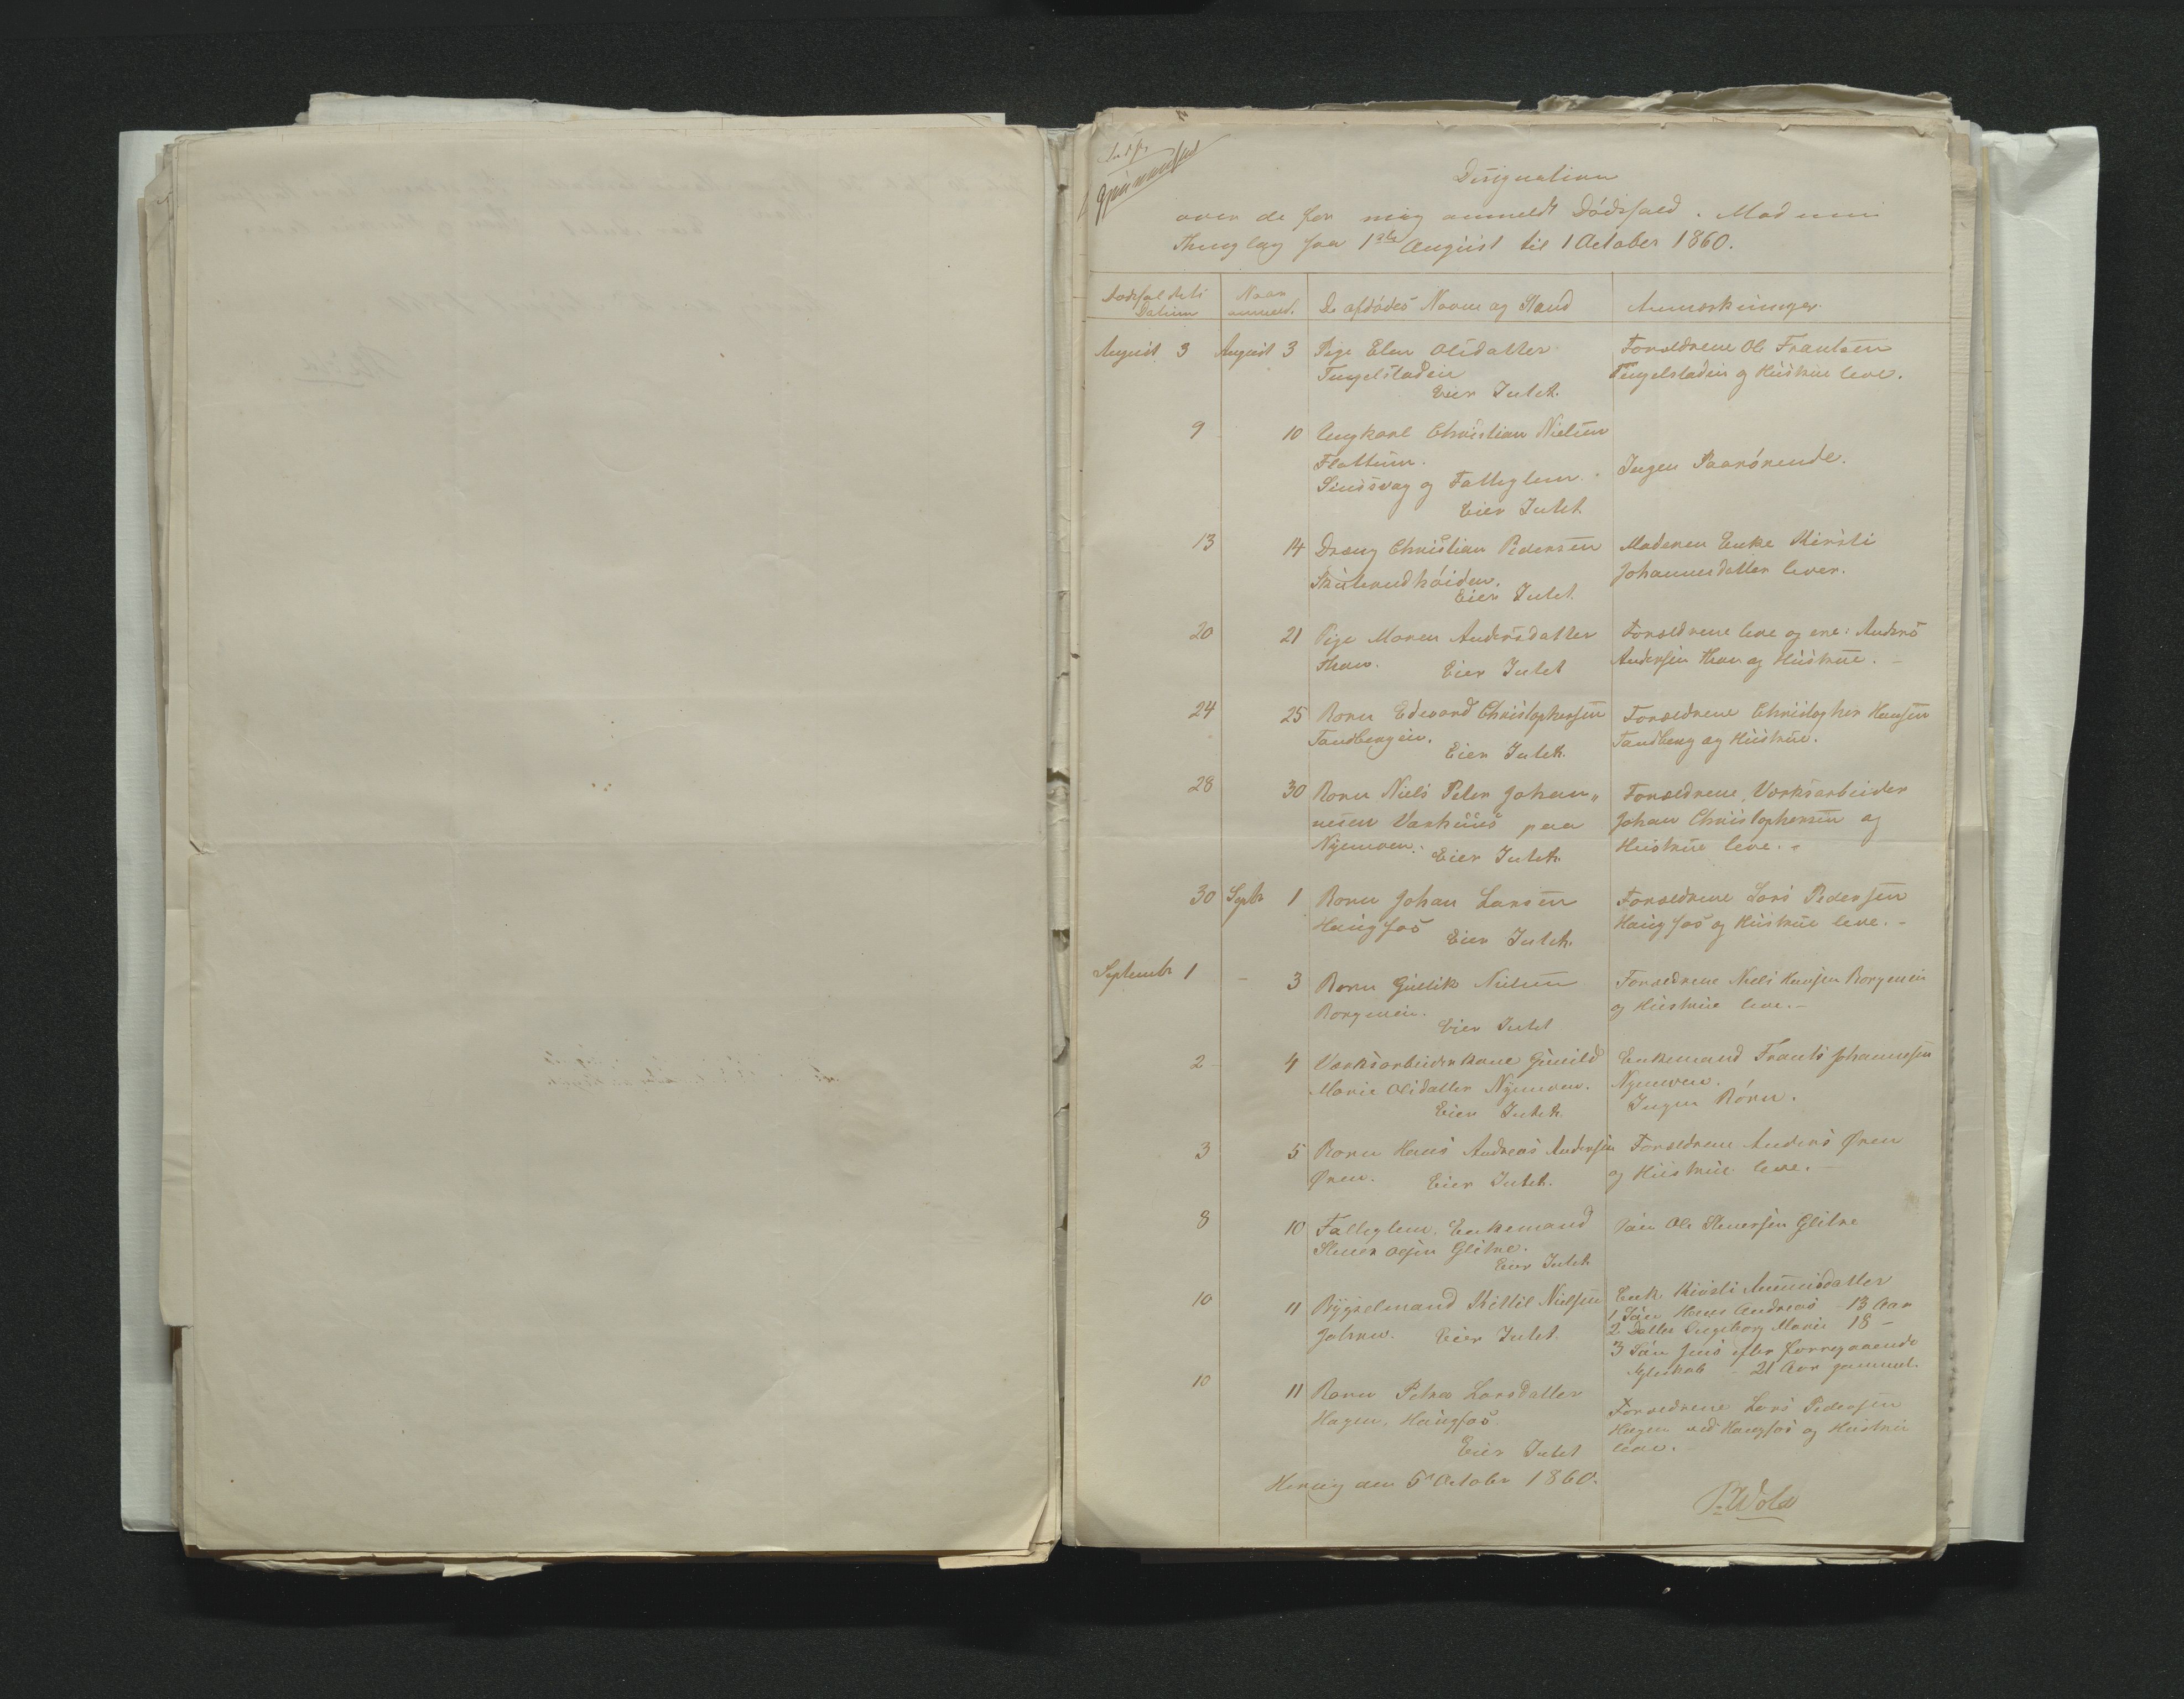 Designation
over de for mig anmeldt Dödsfald. Modum
Thinglag fra 1ste August til 1 October 1860.
Dödsfaldets Datum
Naar anmeldt.
De afdödes Navne og Stand
Anmærkninger.
August 3 August 3 Pige Elen Olsdatter
Tingelstadeie
Eier Intet.
Forældrene Ole Frantsen
Tingelstadeie og Hustrue leve.
9 10 Ungkarl Christian Nielsen
Flattum.
Sindssvag og Fattiglem.
Eier Intet
Ingen Paarörende.
13 14 Dreng Christian Pedersen
Skutrudhöiden.
Eier Intet.
Moderen Enke Kirsti
Johannesdatter lever.
20 21 Pige Maren Andersdatter
Thon.
Eier Intet
Forældrene leve og ere: Anders
Andersen Thon og Hustrue.
24 25 Barn Edevard Christophersen
Tandbergeie.
Eier Intet.
Forældrene Christopher Hansen
Tandberg og Hustrue.
28 30 Barn Niels Peter Johan„
nesen Værkuus paa
Nymoen. Eier Intet.
Forældrene, Værksarbeider
Johan Christophersen og
Hustrue leve.
30 Septr 1 Barn Johan Larsen
Haugfos
Eier Intet.
Forældrene Lars Pedersen
Haugfos og Hustrue leve.
Septembr 1 - 3 Barn Gullik Nielsen
Borgeneie.
Eier Intet
Forældrene Niels Hansen Borgeneie
og Hustrue leve.
2 4 Værksarbeiderkone Gunild
Marie Olsdatter Nymoen.
Eier Intet
Enkemand Frants Johannesen
Nymoen.
Ingen Börn.
3 5 Barn Hans Andreas Andersen
Øren. Eier Intet.
Forældrene Anders Øren
og Hustrue leve.
8 10 Fattiglem, Enkemand
Stener Olsen Glitre.
Eier Intet
Sön Ole Stenersen Glitre
10 11 Bygselmand Kittil Nielsen
Eier Intet
Enke Kirsti
1 Sön Hans Andreas - 13 Aar
2 Datter Ingeborg Marie 18 -
3 Sön Jens efter Forregaaende
Egteskab - 21 Aar gammel.
10 11 Barn Petrea Larsdatter
Hagen, Haugfos.
Eier Intet
Forældrene Lars Pedersen
Hagen ved Haugfos og Hustrue
leve.
den 5 October 1860.